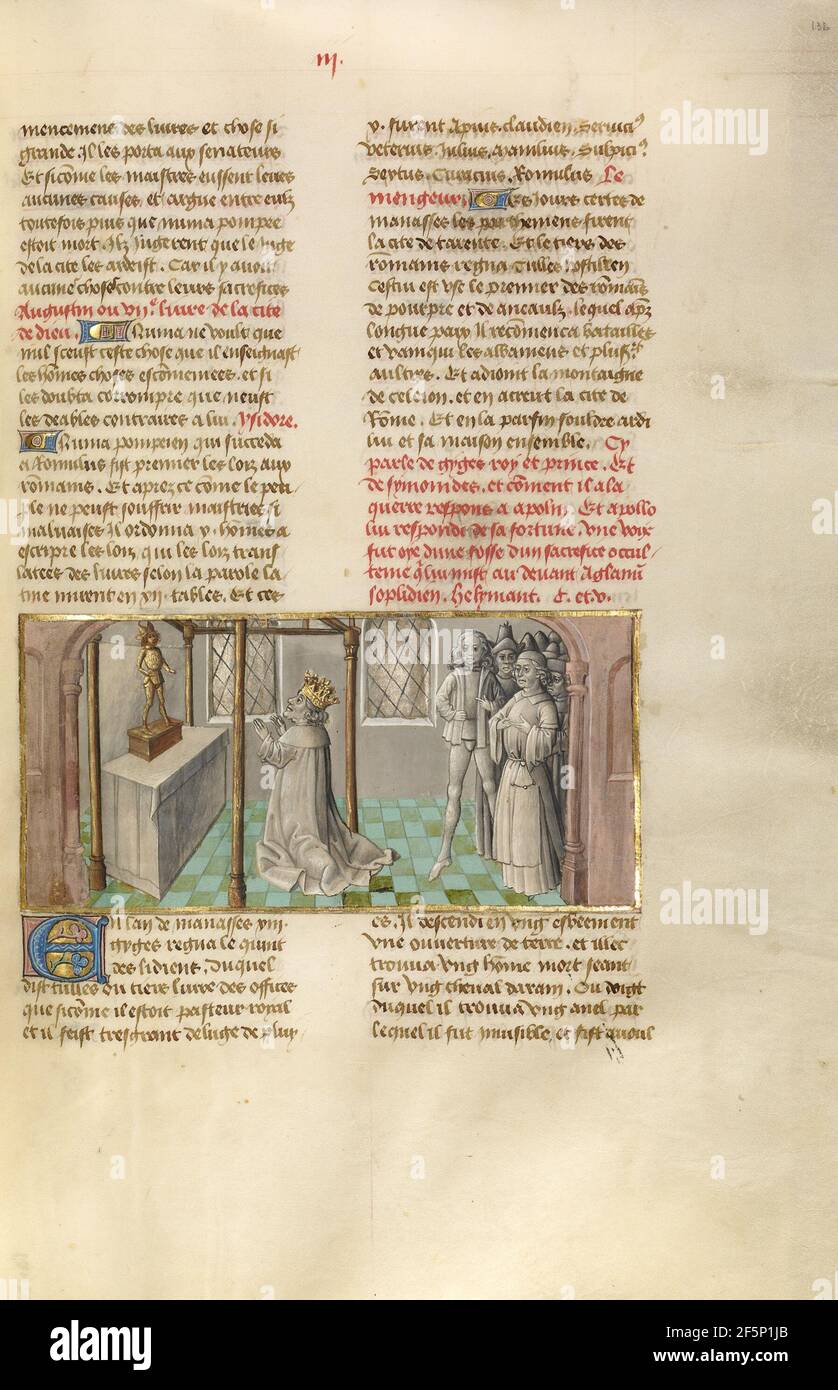 132
III.
mencement des livres et chose si
grande. Il les porta aux senateurs
Et sicome les maistres eussent leues
aucunes causes. et argue entre eulz
toutesfois puis que numa pompee
estoit mort. Ilz Jugerent que le Juge
de la cite les ardist. Car il y avoit
aucune chose contre leurs sacrefices
Augustin ou vij.e livre de la cite
de dieu. Numa ne voult que
nul sceust ceste chose que il enseignast
les homes choses escomenees. et si
les doubta corrompre que neust
les deables contraires a lui. Ysidore.
Numa pompeien qui succeda
a Romulus fist premier les loix aux
romains. Et aprez ce come le peu
ple ne peust souffrir maistries si
malvaises Il ordonna v. homes a
escripre les loix. qui les loix trans
latees des livres selon la parole la
tine mirent en xij. tables. Et ces
v. furent Apius. claudien. Servici9
Veterius. Julius. Manilius. Sulpici9
Sextus. Curacius. Romulus Le
mengeur. Es Jours certes de
manasses les parthemens firent
la cite de tarente. Et le tiers des
Romains regna Tulles hostilien
Cestui est use le premier des romais
de pourpre et de aneaulz. lequel apz
longue paix Il recomenca batailles
et vainqui les albaniens et plusrs
aultres. Et adiont la montaigne
de celeion. et en acreut la cite de
Rome. Et en la parfin fouldre ardi
lui et sa maison ensemble. Cy
parle de gyges roy et prince. Et
de symonides. et coment il a la
querre respons a apolin. Et apollo
lui respondi de sa fortune. Une voix
fut oye dune fosse dun sacrefice occul
teme qui lui mist au devant Aglanu
sophidien. Helymant. C. et. v.
En lan de manasses viij.
gyges regna le quint
des lidiens. Duquel
dist tulles ou tiers livre des offices
que sicome il estoit pasteur royal
et il feist tresgrant deluge de pluy
es. Il descendi en ung esbeement
Une ouverture de terre. et illec
trouva ung home mort seant
sur ung cheval darain. Ou doigt
duquel il trouva ung anel par
lequel il fut invisible. et fist quoul
alamy
Image ID: 2F5P1JB
www.alamy.com